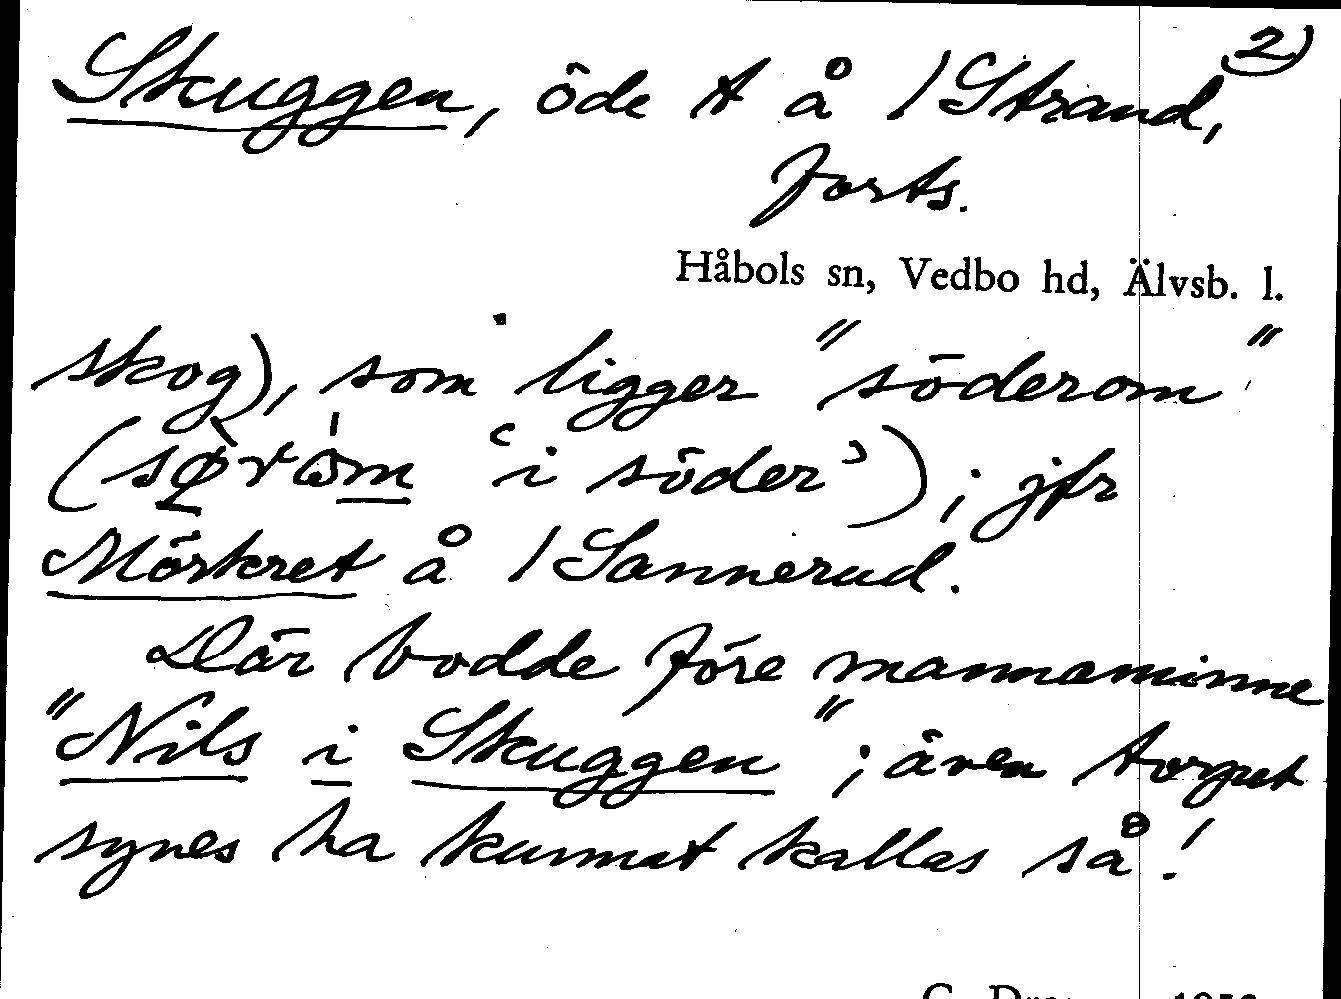 2)
Skuggen, öde t å 1 Strand,
forts.
Håbols sn, Vedbo hd, Älvsb. l.
skog), som ligger "söderom"
(sørôm 'i söder'); jfr
Mörkret å 1 Sannerud.
Där bodde före mannaminne
"Nils i Skuggen"; även torpet
synes ha kunnat kallas så!